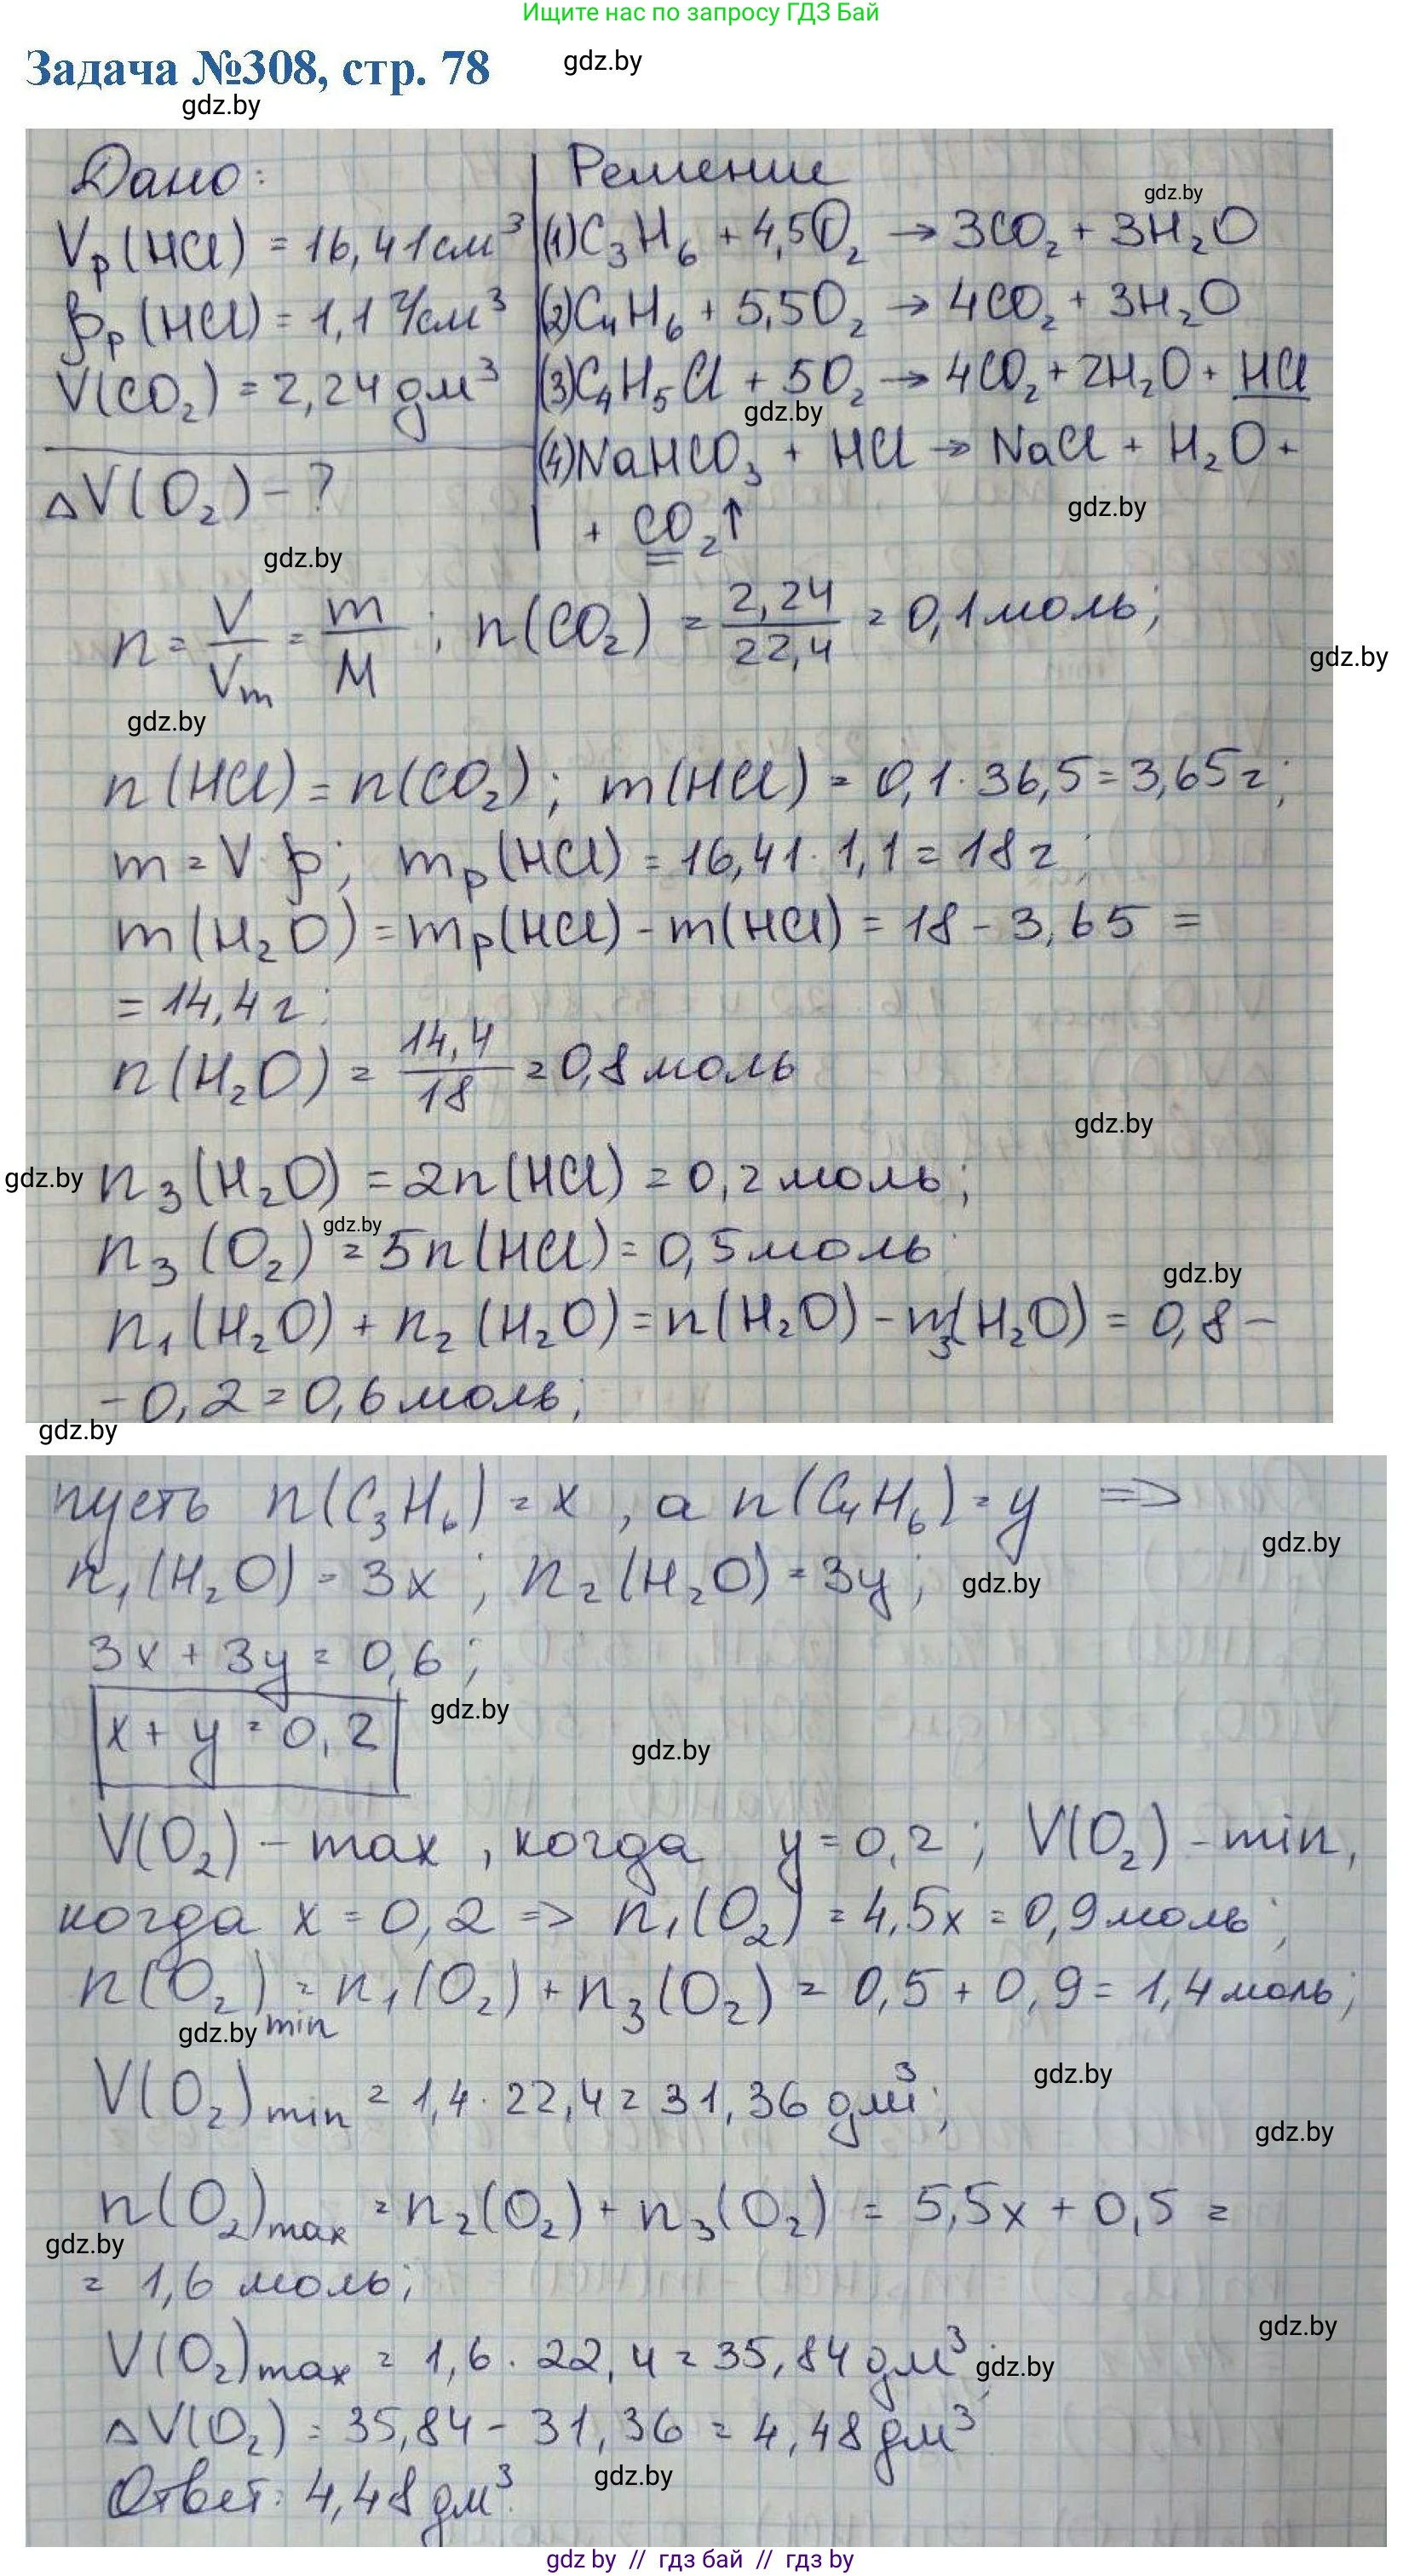 Ищите нас по запросу ГДЗ Бай
Задача №308, стр. 78
gdz.by
gdz.by
Дано:
Решение
gdz.by
Vр(HCl) = 16,41 см³
(1) C₃H₆ + 4,5O₂ → 3CO₂ + 3H₂O
ρр(HCl) = 1,1 г/см³
(2) C₄H₆ + 5,5O₂ → 4CO₂ + 3H₂O
V(CO₂) = 2,24 дм³
(3) C₄H₅Cl + 5O₂ → 4CO₂ + 2H₂O + HCl
gdz.by
ΔV(O₂) - ?
(4) NaHCO₃ + HCl → NaCl + H₂O +
gdz.by
+ CO₂↑
gdz.by
n = V/Vm = m/M ; n(CO₂) = 2,24/22,4 = 0,1 моль;
gdz.by
gdz.by
n(HCl) = n(CO₂); m(HCl) = 0,1 · 36,5 = 3,65 г;
m = V · ρ; mр(HCl) = 16,41 · 1,1 = 18 г;
m(H₂O) = mр(HCl) - m(HCl) = 18 - 3,65 =
= 14,4 г;
n(H₂O) = 14,4/18 = 0,8 моль
gdz.by
gdz.by
n₃(H₂O) = 2n(HCl) = 0,2 моль;
gdz.by
n₃(O₂) = 5n(HCl) = 0,5 моль
gdz.by
n₁(H₂O) + n₂(H₂O) = n(H₂O) - n₃(H₂O) = 0,8 -
- 0,2 = 0,6 моль;
gdz.by
пусть n(C₃H₆) = x, а n(C₄H₆) = y ⇒
gdz.by
n₁(H₂O) = 3x; n₂(H₂O) = 3y;
gdz.by
3x + 3y = 0,6;
x + y = 0,2
gdz.by
gdz.by
V(O₂) - max, когда y = 0,2; V(O₂) - min,
когда x = 0,2 ⇒ n₁(O₂) = 4,5x = 0,9 моль;
n(O₂)min = n₁(O₂) + n₃(O₂) = 0,5 + 0,9 = 1,4 моль;
gdz.by
gdz.by
V(O₂)min = 1,4 · 22,4 = 31,36 дм³;
gdz.by
n(O₂)max = n₂(O₂) + n₃(O₂) = 5,5x + 0,5 =
gdz.by
= 1,6 моль;
gdz.by
V(O₂)max = 1,6 · 22,4 = 35,84 дм³;
gdz.by
ΔV(O₂) = 35,84 - 31,36 = 4,48 дм³
gdz.by
Ответ: 4,48 дм³.
gdz by // гдз бай // гдз by